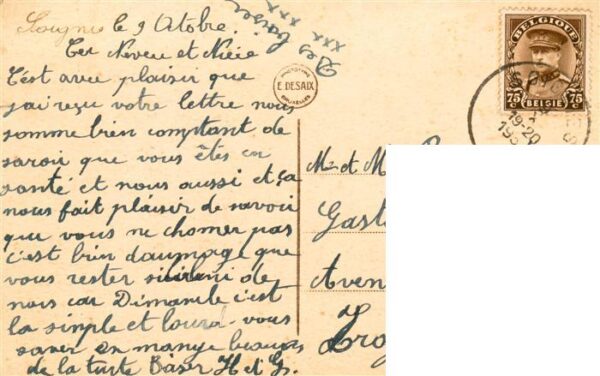 Soignies le 9 Atobre.
Cer Neveu et Nièce
C'est avec plaisir que
j'ai reçu votre lettre nous
somme bien comptant de
savoir que vous êtes en
santé et nous aussi et ça
nous fait plaisir de savoir
que vous ne chomer pas
c'est bien daumage que
vous rester si de
nous car Dimanche c'est
la simple et lourd vous
saver on mange beaucoup
de la tarte Baser H et G.
Des baiser
xxx xxx
PHOTOTYPIE
E. DESAIX
BRUXELLES
BELGIQUE
75 C
75 C
BELGIË
19-20
193
Mr et M
Gast
Aven